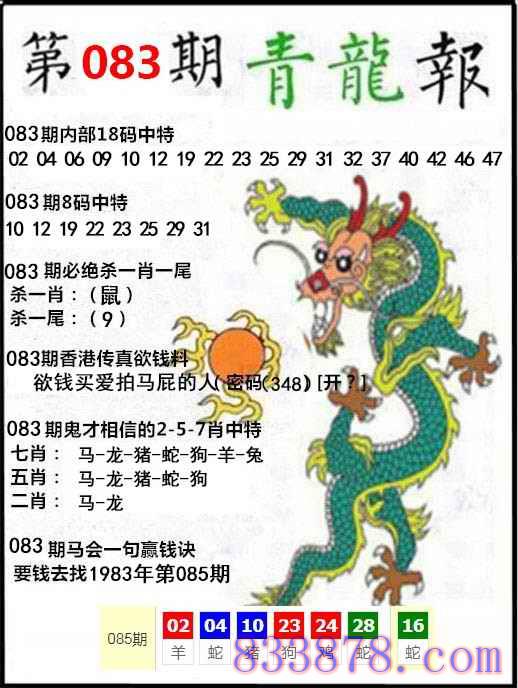 第083期青龍報
083期内部18码中特
02 04 06 09 10 12 19 22 23 25 29 31 32 37 40 42 46 47
083期8码中特
10 12 19 22 23 25 29 31
083期必绝杀一肖一尾
杀一肖：（鼠）
杀一尾：（9）
083期香港传真欲钱料
欲钱买爱拍马屁的人(密码(348)[开？]
083期鬼才相信的2-5-7肖中特
七肖： 马-龙-猪-蛇-狗-羊-兔
五肖： 马-龙-猪-蛇-狗
二肖： 马-龙
083期马会一句赢钱诀
要钱去找1983年第085期
085期 02 04 10 23 24 28 16
羊 蛇 猪 狗 鸡 蛇 蛇
833878.com